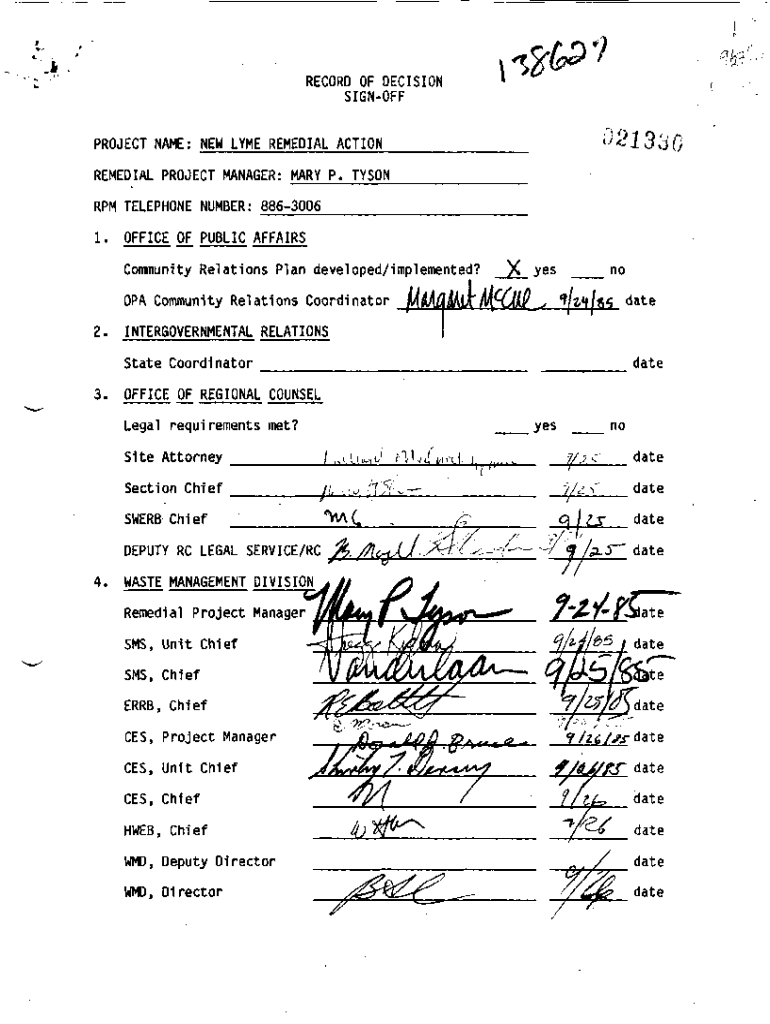 138627
RECORD OF DECISION
SIGN-OFF
021330
PROJECT NAME: NEW LYME REMEDIAL ACTION
REMEDIAL PROJECT MANAGER: MARY P. TYSON
RPM TELEPHONE NUMBER: 886-3006
1. OFFICE OF PUBLIC AFFAIRS
Community Relations Plan developed/implemented? X yes ____ no
OPA Community Relations Coordinator Margaret McCue 9/24/85 date
2. INTERGOVERNMENTAL RELATIONS
State Coordinator ____ date
3. OFFICE OF REGIONAL COUNSEL
Legal requirements met? ____ yes ____ no
Site Attorney 9/25 date
Section Chief 9/25 date
SWERB Chief 9/25 date
DEPUTY RC LEGAL SERVICE/RC 9/25 date
4. WASTE MANAGEMENT DIVISION
Remedial Project Manager Mary P. Tyson 9-24-85 date
SMS, Unit Chief 9/24/85 date
SMS, Chief Vanderlaan 9/25/85 date
ERRB, Chief 9/25/85 date
CES, Project Manager Donald J. Bruce 9/26/85 date
CES, Unit Chief 9/26/85 date
CES, Chief 9/26 date
HWEB, Chief 9/26 date
WMD, Deputy Director date
WMD, Director date